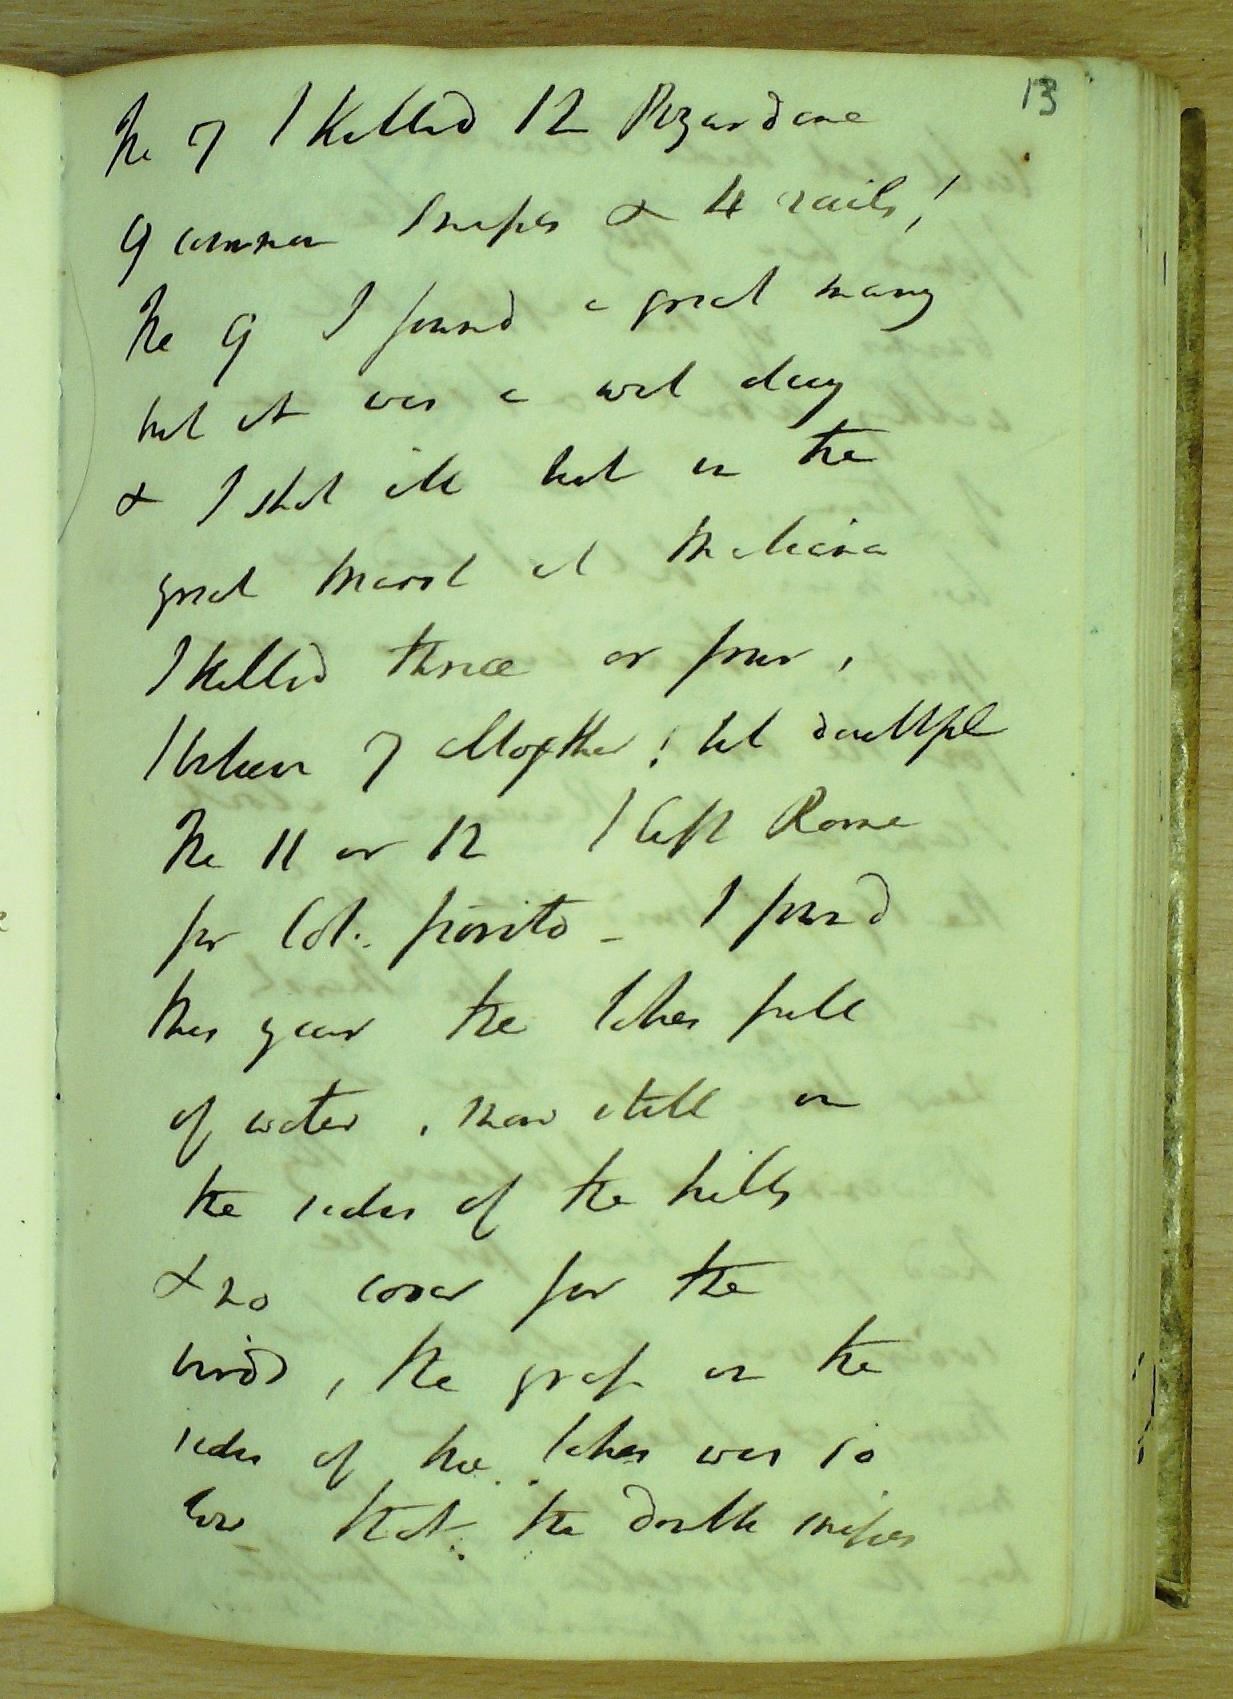 13
The 7 I killed 12 Pizardone
9 common snipes & 4 rails!
The 9 I found a great many
but it was a wet day
& I shot ill but in the
great marsh at Maliana
I killed three or four,
I believe 7 altogether; but doubtful
The 11 or 12 I left Rome
for Col. fiorito - I found
this year the lakes full
of water, snow still on
the sides of the hills
& no cover for the
birds, the grass on the
sides of the lakes was so
low that the double snipes